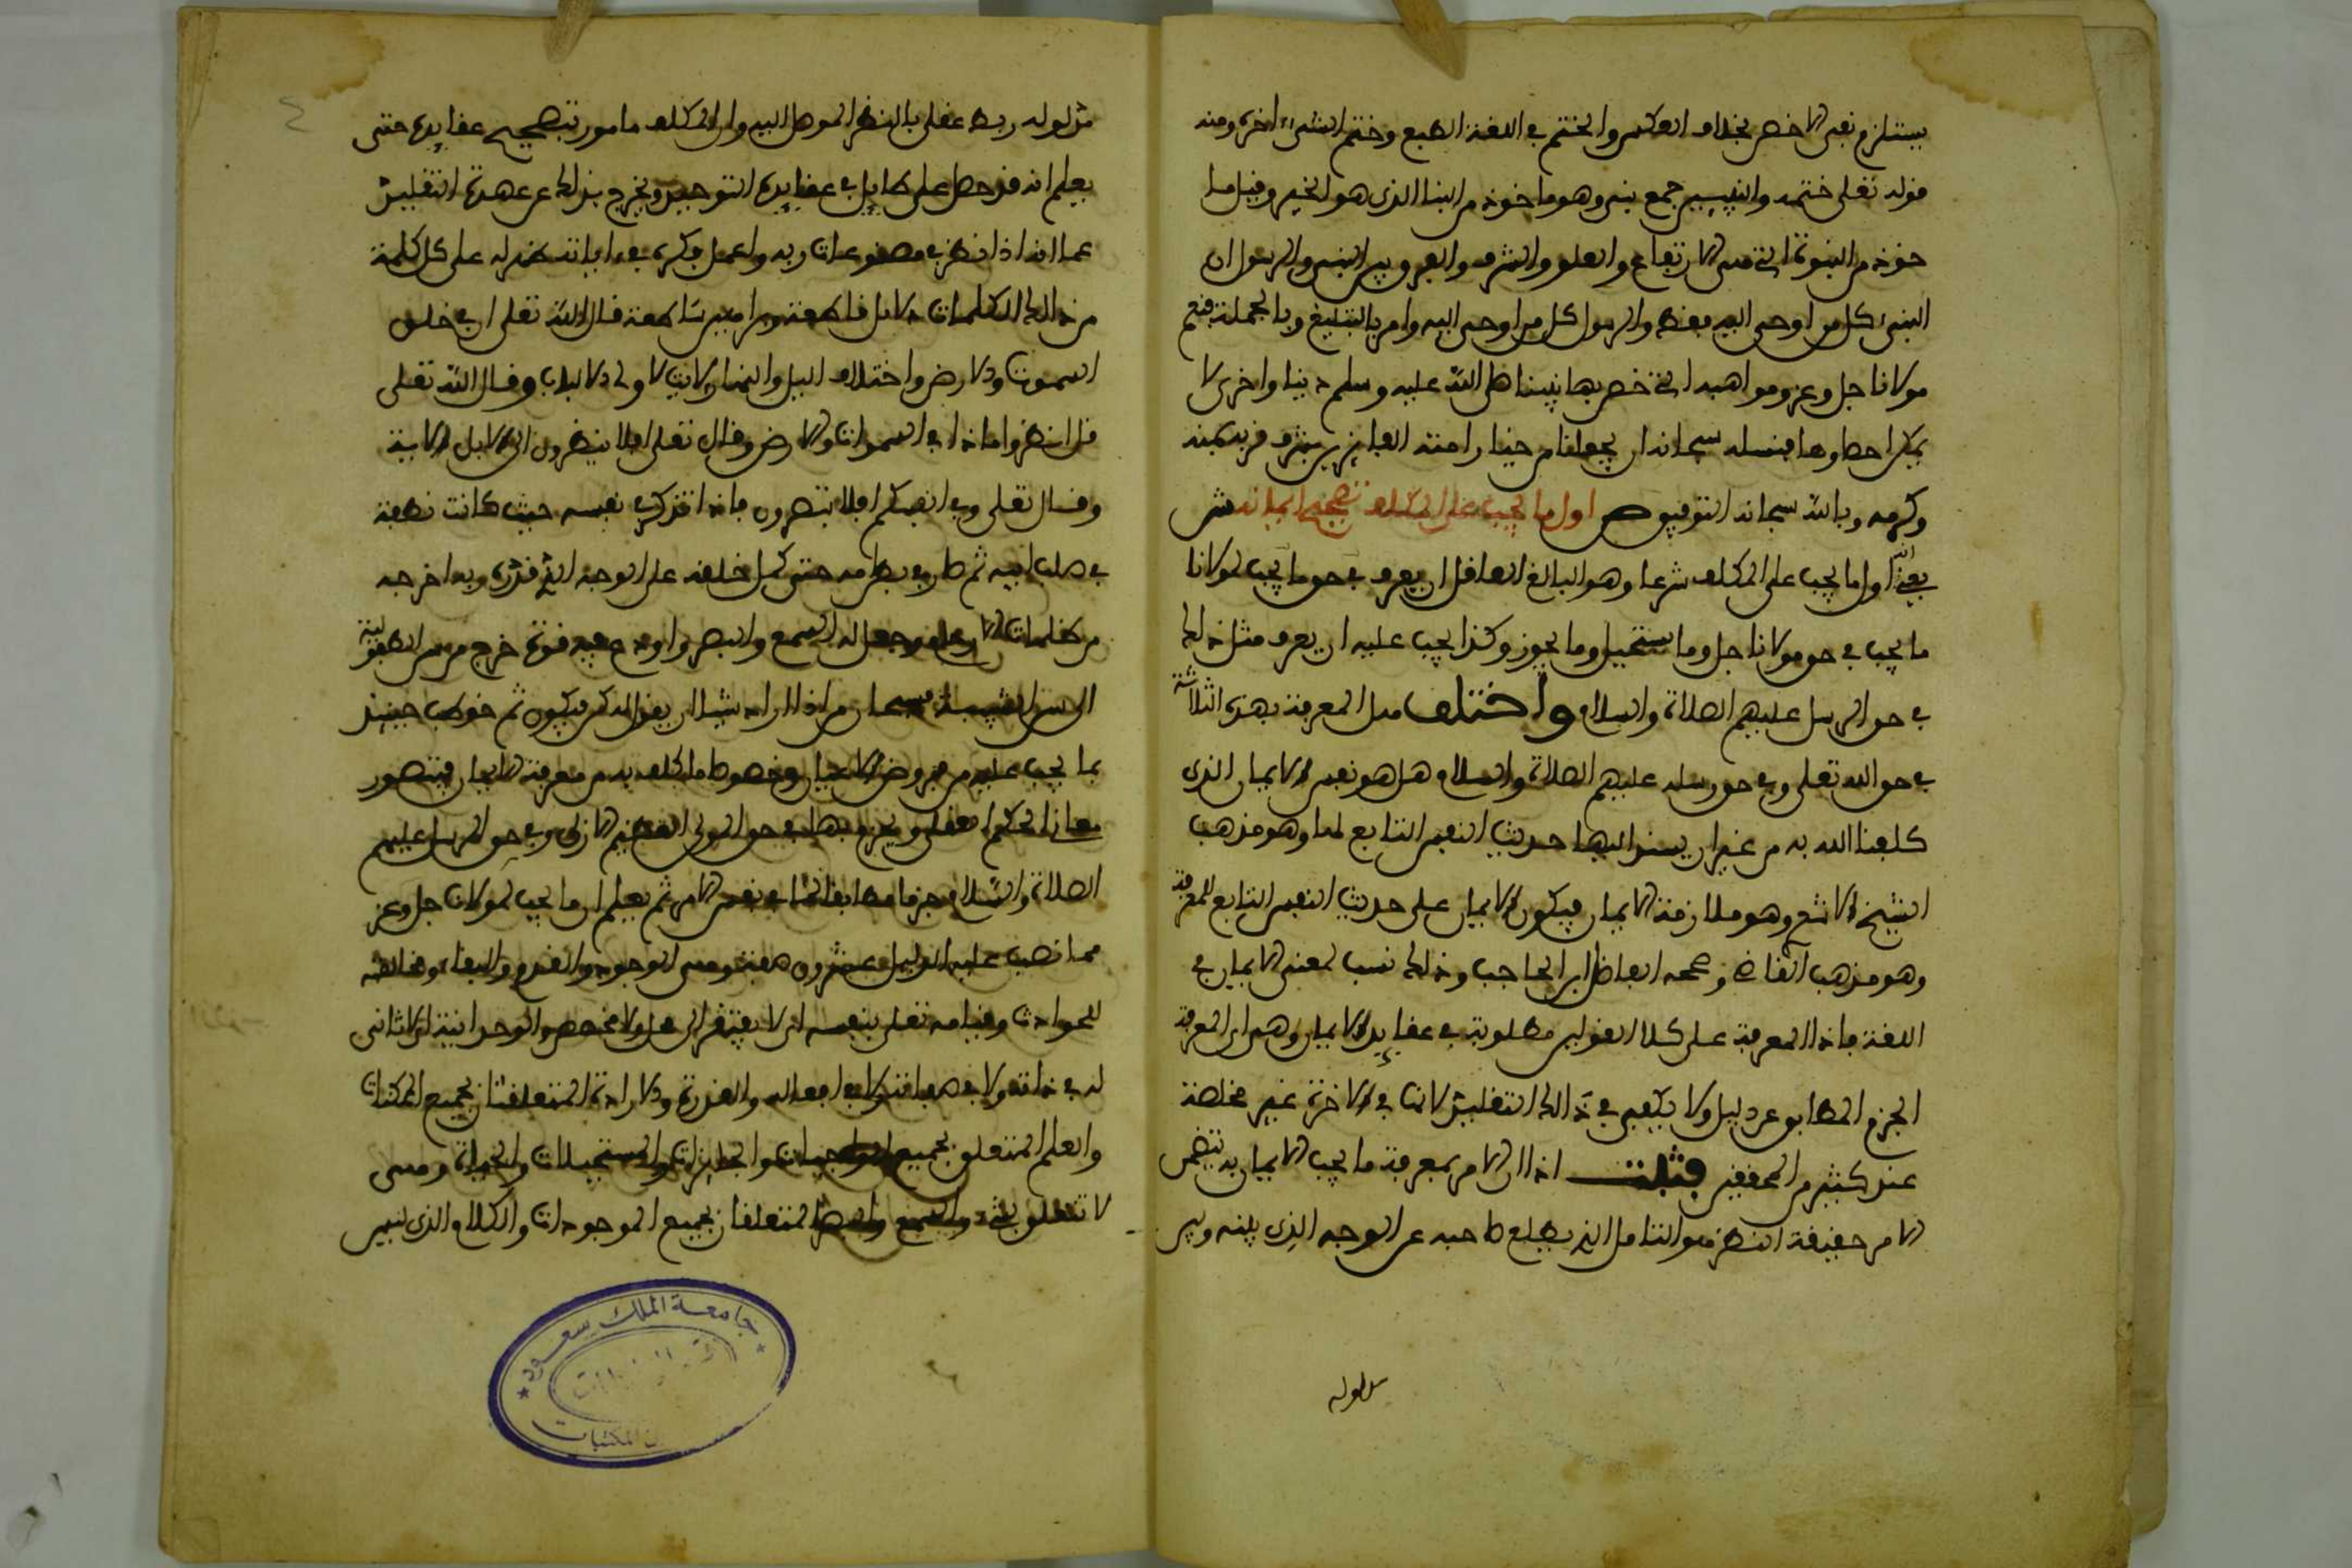 يستلزم نفي الاخص بخلاف العكس والختم في اللغة الطبع وختم الشيء اخره ومنه
قوله تعلى ختمه والنبيين جمع نبي وهو ماخوذ من النبا الذي هو الخبر وقيل ما
خوذ من النبوة التي هي الارتفاع والعلو والشرف والفرق بين النبي والرسول ان
النبي كل من اوحي اليه فقط والرسول كل من اوحي اليه وامر بالتبليغ وبالجملة فنعم
مولانا جل وعز ومواهبه التي خص بها نبينا صلى الله عليه وسلم دنيا واخرى لا
يمكن احصاوها فنسله سبحانه ان يجعلنا من خيار امته الفايزين بشرف قربه بمنه
وكرمه وبالله سبحانه التوفيق ص اول ما يجب على المكلف تصحيح ايمانه ش
يعني ان اول ما يجب على المكلف شرعا وهو البالغ العاقل ان يعرف في حق ما يجب لمولانا
ما يجب في حق مولانا جل وما يستحيل وما يجوز وكذا يجب عليه ان يعرف مثل ذلك
في حق الرسل عليهم الصلاة والسلام واختلف هل المعرفة بهذه الثلاثة
في حق الله تعلى وفي حق رسله عليهم الصلاة والسلام هل هو نفس الايمان الذي
كلفنا الله به من غير ان يسند اليها حديث النفس التابع لها وهو مذهب
الشيخ الاشعري وهو ملازمة الايمان فيكون الايمان على حديث النفس التابع للمعرفة
وهو مذهب القاضي وصححه الفاضل ابن الحاجب وذلك نسب لمعنى الايمان في
اللغة فاذا المعرفة على كلا القولين مطلوبة في عقايد الايمان وهي المعرفة
الجزم المطابق عن دليل ولا يكفي في ذالك التقليد لانها في الاخرة غير مخلصة
عند كثير من المحققين قلت اذا الامر بمعرفة ما يجب الايمان به يتضمن
الامر حقيقة النظر هو التامل الذي يطلع صاحبه عن الوجه الذي بينه وبين
مدلوله
مدلوله ربط عقلي بالنظر الموصل اليه وان المكلف مامور بتصحيح عقايده حتى
يعلم انه قد حصل على طايل في عقايده التوحيد ويخرج بذلك عن عهدة التقليد
عما الله اذا نظر في مصنوعات ربه واعمل فكره في اياته ظهر له على كل كلمة
من ذالك الكلمات دلايل قاطعة وبراهين ساطعة قال الله تعلى ان في خلق
السموات والارض واختلاف اليل والنهار لايات لاولي الالباب وقال الله تعلى
قل انظروا ماذا في السموات والارض وقال تعلى افلا ينظرون الى الابل الاية
وقال تعلى وفي انفسكم افلا تبصرون فاذا تذكر نفسه حيث كانت نطفة
في صلب ابيه ثم صار في بطن امه حتى كمل خلقه على الوجه الذي قدره ربه اخرجه
من ظلمات الارحام وجعل له السمع والبصر واودع فيه قوة خرج من سن الطفولية
الى سن الشبيبة فسبحان من اذا اراد شيئا ان يقول له كن فيكون ثم خوطب حينئذ
بما يجب عليه من فروض الاعيان وخصوصا ما كلف به من معرفة الايمان فيتصور
معاني الحكم العقلي ويعرف بها في حق المولى العظيم الازلي وفي حق الرسل عليهم
الصلاة والسلام جزما مطابقا لما في نفس الامر ثم يعلم ان ما يجب لمولانا جل وعز
مما نصب عليه الدليل عشرون صفة وهي الوجود والقدم والبقاء ومخالفته
للحوادث وقيامه تعلى بنفسه اي لا يفتقر الى محل ولا مخصص والوحدانية اي لا ثاني
له في ذاته ولا في صفاته ولا في افعاله والقدرة والارادة المتعلقتان بجميع الممكنات
والعلم المتعلق بجميع الواجبات والجايزات والمستحيلات والحياة وهي
لا تتعلق بشيء والسمع والبصر المتعلقان بجميع الموجودات والكلام الذي ليس
جامعة الملك سعود
المكتبات